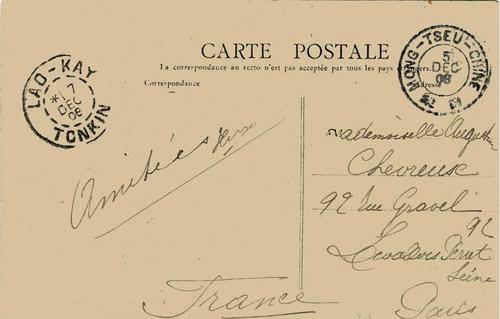 CARTE POSTALE
La correspondance au recto n'est pas acceptée par tous les pays étrangers.
Correspondance
Adresse
LAO-KAY
7
DEC
08
TONKIN
MONG-TSEU-CHINE
5
DEC
08
Amitiées
Mademoiselle
Chevreuse
92 Rue Gravel 92
Levallois Perret
Seine
Paris
France